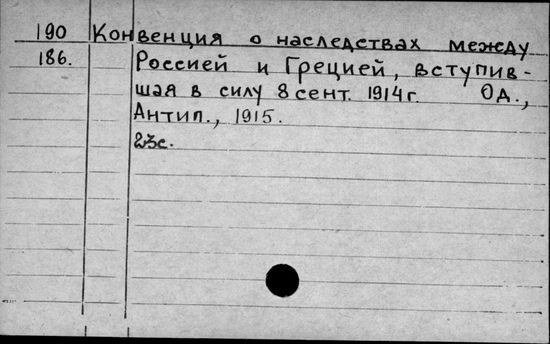 190 Конвенция о наследствах между
186. Россией и Грецией, вступив-
шая в силу 8 сент. 1914г. Од.,
Антип., 1915.
23с.